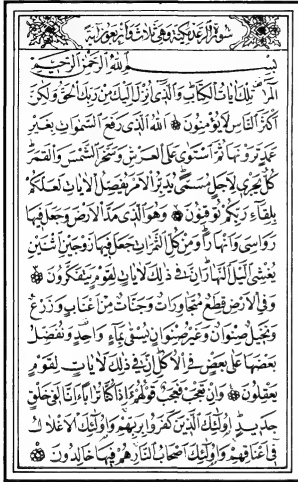 سورة الرعد مكية وهي ثلاث واربعون آية
بِسْمِ اللَّهِ الرَّحْمَنِ الرَّحِيمِ
المر تِلْكَ آيَاتُ الْكِتَابِ وَالَّذِي أُنْزِلَ إِلَيْكَ مِنْ رَبِّكَ الْحَقُّ وَلَكِنَّ
أَكْثَرَ النَّاسِ لَا يُؤْمِنُونَ ۞ اللَّهُ الَّذِي رَفَعَ السَّمَوَاتِ بِغَيْرِ
عَمَدٍ تَرَوْنَهَا ثُمَّ اسْتَوَى عَلَى الْعَرْشِ وَسَخَّرَ الشَّمْسَ وَالْقَمَرَ
كُلٌّ يَجْرِي لِأَجَلٍ مُسَمًّى يُدَبِّرُ الْأَمْرَ يُفَصِّلُ الْآيَاتِ لَعَلَّكُمْ
بِلِقَاءِ رَبِّكُمْ تُوقِنُونَ ۞ وَهُوَ الَّذِي مَدَّ الْأَرْضَ وَجَعَلَ فِيهَا
رَوَاسِيَ وَأَنْهَارًا وَمِنْ كُلِّ الثَّمَرَاتِ جَعَلَ فِيهَا زَوْجَيْنِ اثْنَيْنِ
يُغْشِي اللَّيْلَ النَّهَارَ إِنَّ فِي ذَلِكَ لَآيَاتٍ لِقَوْمٍ يَتَفَكَّرُونَ ۞
وَفِي الْأَرْضِ قِطَعٌ مُتَجَاوِرَاتٌ وَجَنَّاتٌ مِنْ أَعْنَابٍ وَزَرْعٌ
وَنَخِيلٌ صِنْوَانٌ وَغَيْرُ صِنْوَانٍ يُسْقَى بِمَاءٍ وَاحِدٍ وَنُفَضِّلُ
بَعْضَهَا عَلَى بَعْضٍ فِي الْأُكُلِ إِنَّ فِي ذَلِكَ لَآيَاتٍ لِقَوْمٍ
يَعْقِلُونَ ۞ وَإِنْ تَعْجَبْ فَعَجَبٌ قَوْلُهُمْ أَإِذَا كُنَّا تُرَابًا أَإِنَّا لَفِي خَلْقٍ
جَدِيدٍ أُولَئِكَ الَّذِينَ كَفَرُوا بِرَبِّهِمْ وَأُولَئِكَ الْأَغْلَالُ
فِي أَعْنَاقِهِمْ وَأُولَئِكَ أَصْحَابُ النَّارِ هُمْ فِيهَا خَالِدُونَ ۞